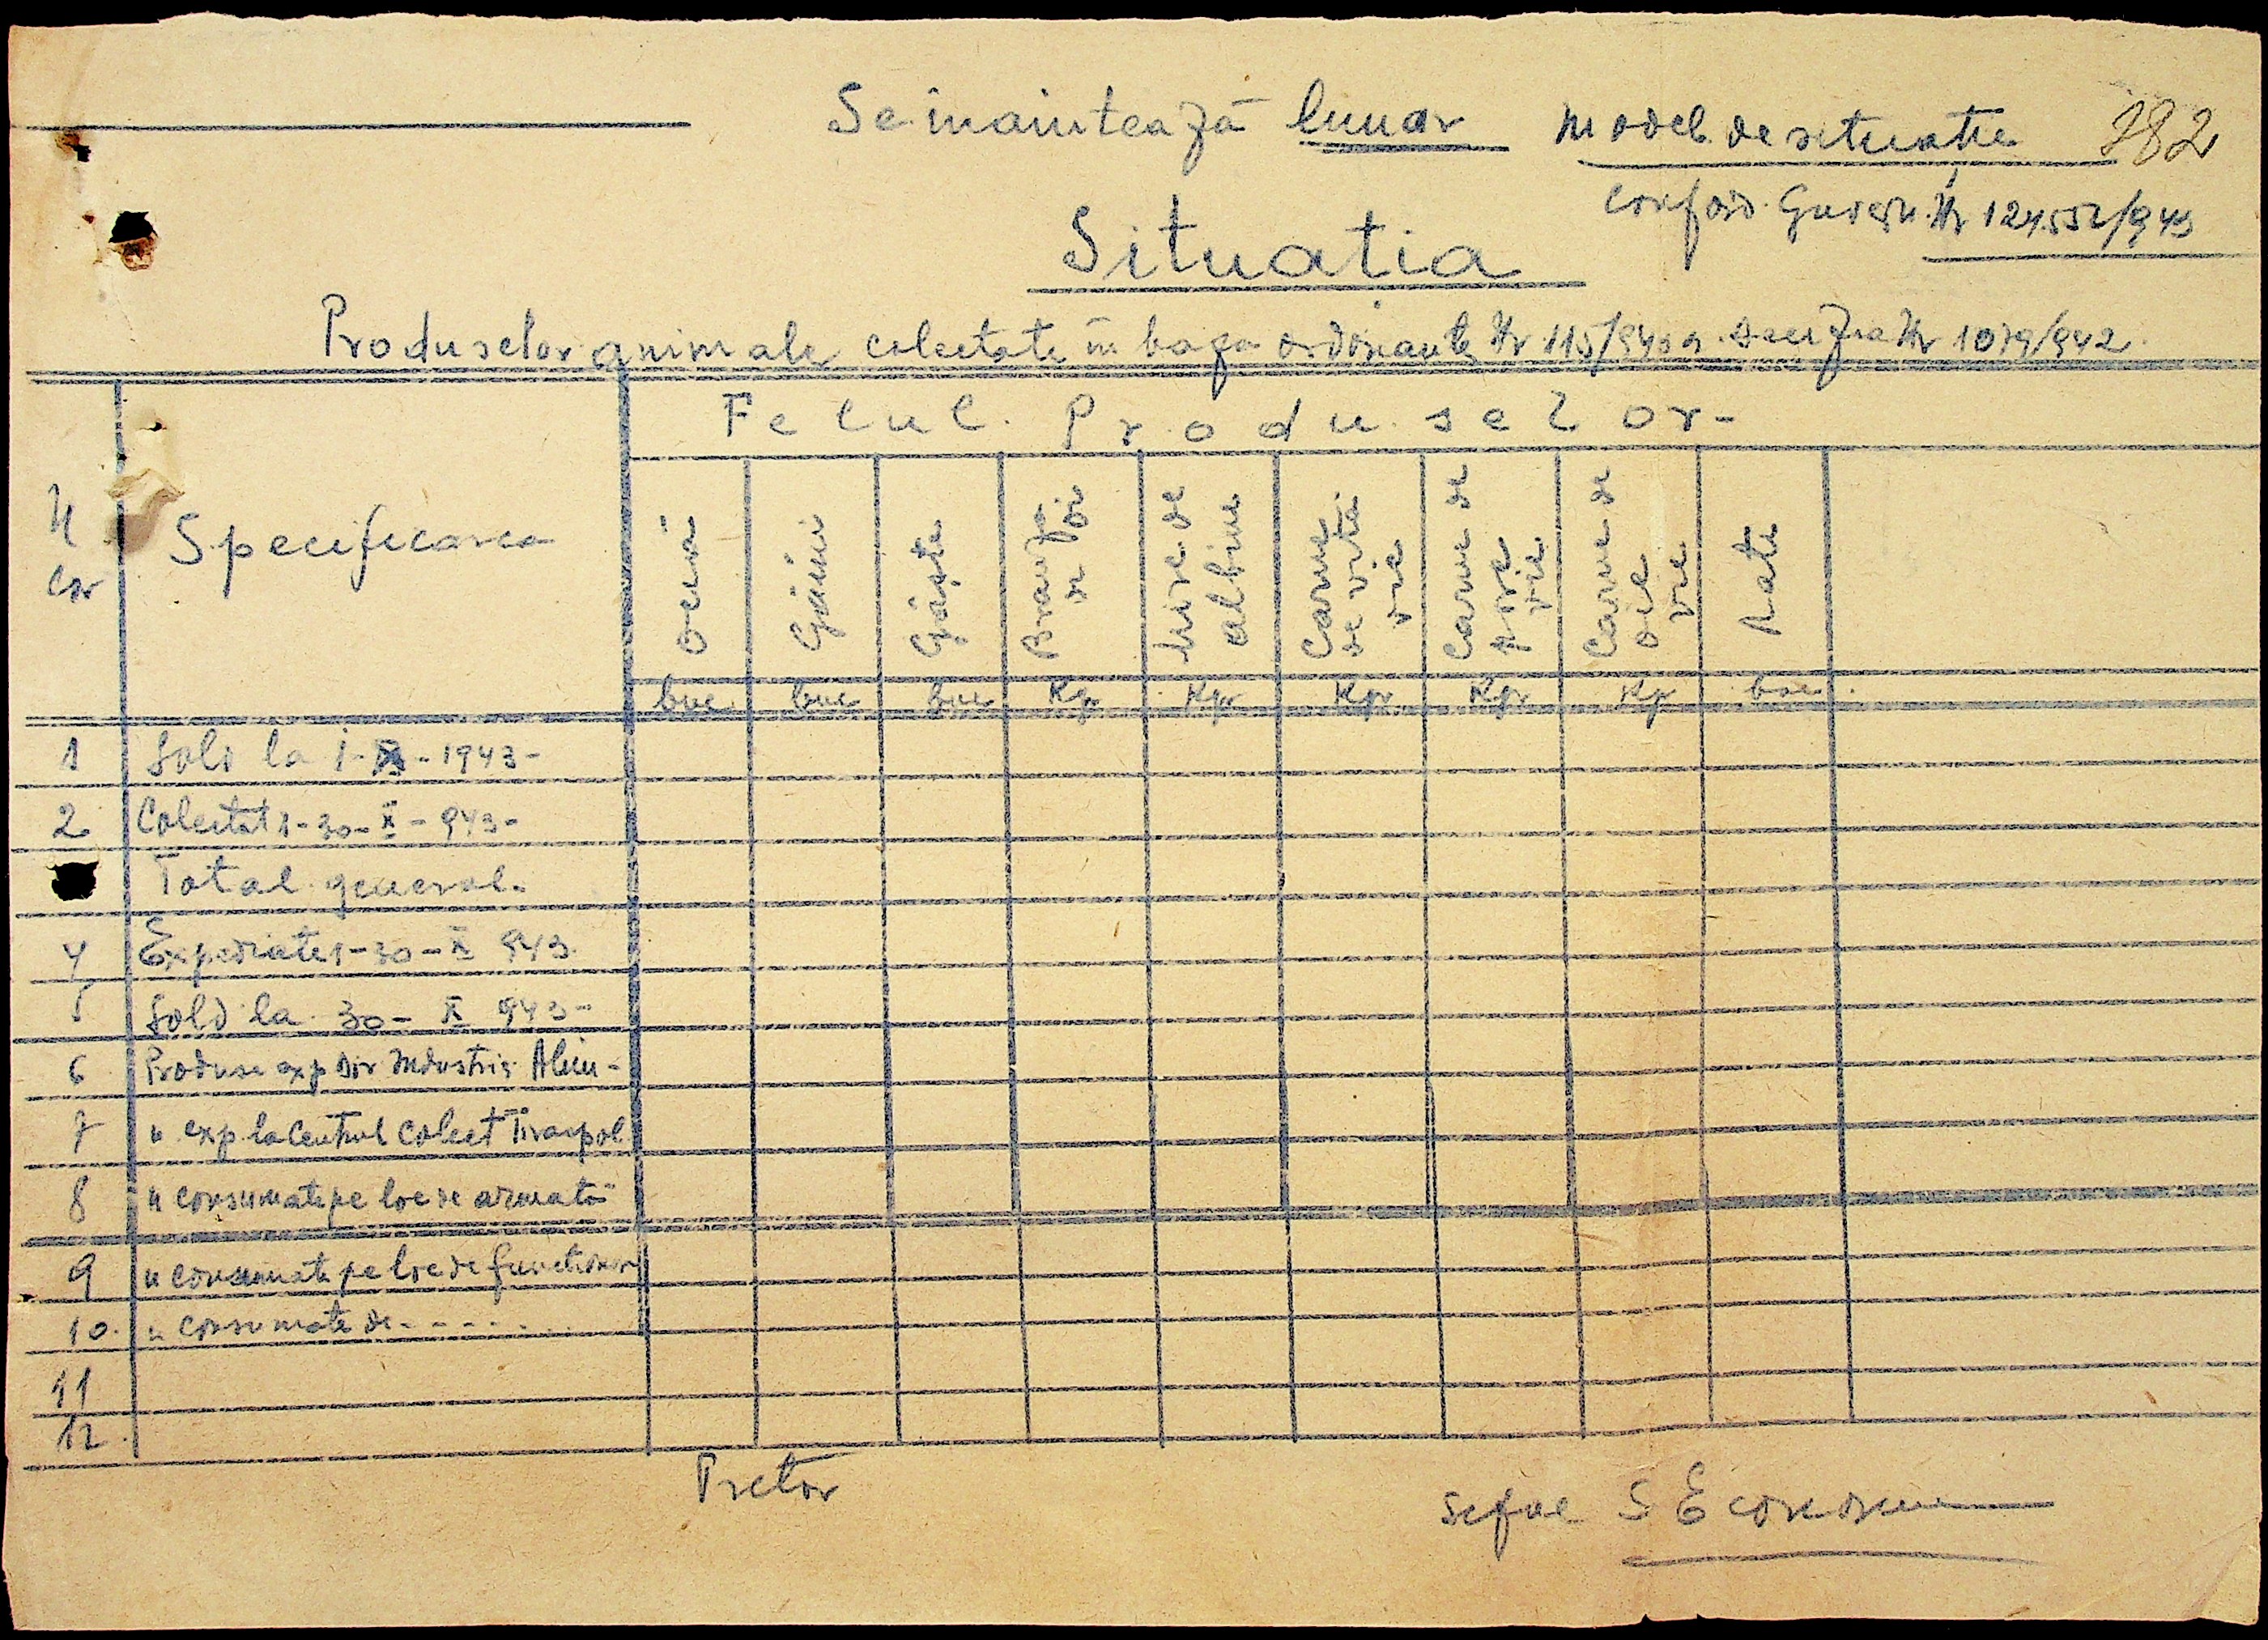 Se inaintează lunar
Model de situatie 282
Conf ord. Guvern. Nr 124.552/943
Situatia
Produselor animale colectate in baza ordonantei Nr 115/943 si deciziea Nr 1079/942.
Felul Produselor-
N
Crt
Specificarea
Oeua
Găini
Gâște
Branză de oi
Miere de albine
Carne de vită vie
Carne de porc vie
Carne de oie vie
Rate
buc. buc buc Kgr Kgr Kgr Kgr Kgr buc.
1 Sold la 1-X-1943-
2 Colectat 1-30-X-943-
Total general.
4 Expediate 1-30-X 943.
5 Sold la 30-X 943-
6 Produse exp Dir Industriei Alim-
7 " exp la Centrul Colect Tiraspol
8 " consumate pe loc de armată
9 " consumate pe loc de functionari
10. " consumate de - - - - - - -
11
12.
Pretor
Seful S Econom